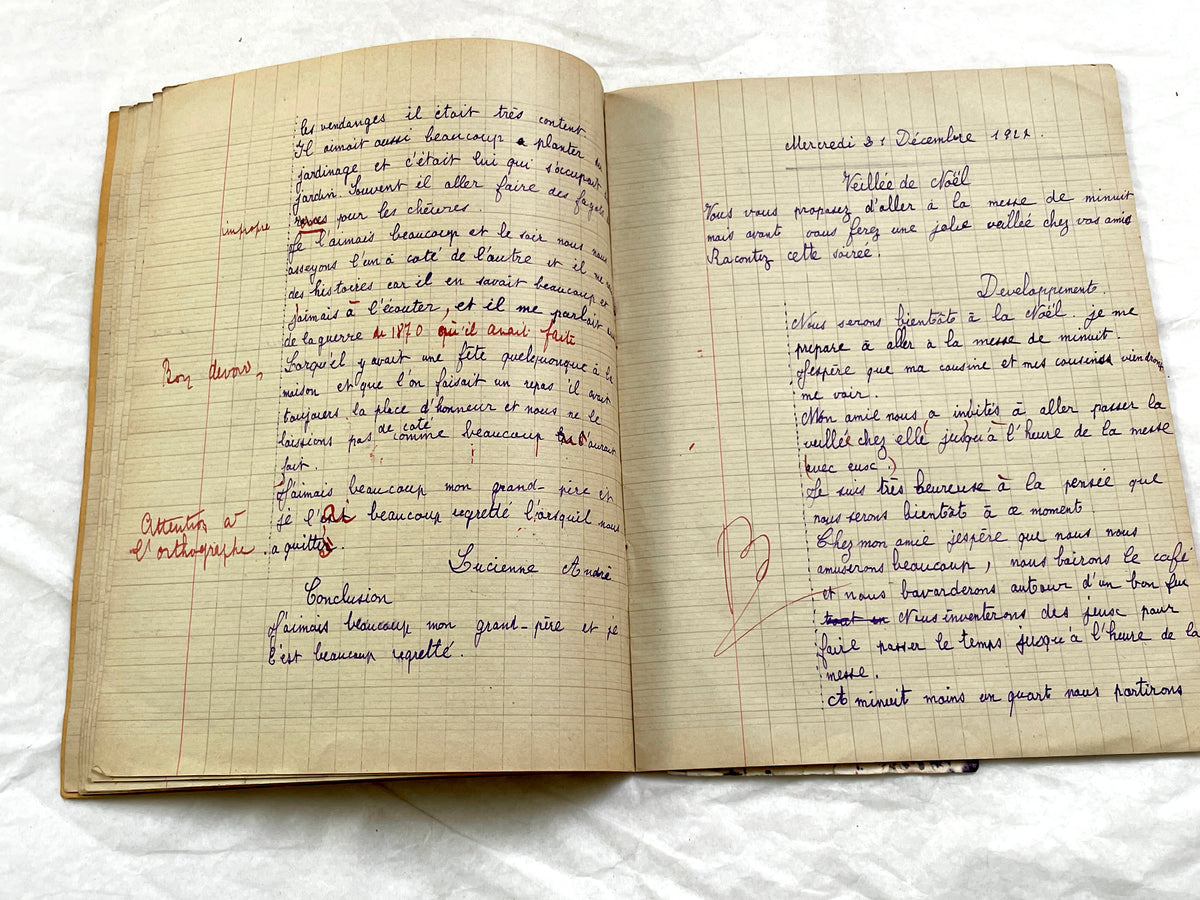 les vendanges il était très content
Il aimait aussi beaucoup a planter
jardinage et c'était lui qui s'occupait
jardin. Souvent il aller faire des fagots
impropre
pour les chèvres.
Je l'aimais beaucoup et le soir nous nous
asseyons l'un à coté de l'autre et il me
des histoires car il en savait beaucoup et
j'aimais à l'écouter, et il me parlait
de la guerre de 1870 qu'il avait faite
Bon devoir,
Lorsqu'il y avait une fête quelquonque à la
maison et que l'on faisait un repas il avait
toujours la place d'honneur et nous ne le
laissions pas de coté comme beaucoup l'aurait
fait.
J'aimais beaucoup mon grand-père et
Attention à
l'orthographe
je l'ai beaucoup regretté lorsquil nous
a quitté.
Lucienne André
Conclusion
J'aimais beaucoup mon grand-père et je
l'est beaucoup regretté.
Mercredi 31 Décembre
Veillée de Noël
Vous vous proposez d'aller à la messe de minuit
mais avant vous ferez une jolie veillée chez vos amis
Racontez cette soirée.
Developpement
Nous serons bientôt à la Noël. je me
prepare à aller à la messe de minuit.
J'espère que ma cousine et mes cousins viendront
me voir.
Mon amie nous a invités à aller passer la
veillée chez elle jusqu'à l'heure de la messe
(avec eux.)
Je suis très heureuse à la pensée que
nous serons bientôt à ce moment.
B
Chez mon amie jespère que nous nous
amuserons beaucoup, nous boirons le café
et nous bavarderons autour d'un bon feu
tout en Nous inventerons des jeux pour
faire passer le temps jusqu'à l'heure de la
messe.
A minuit moins un quart nous partirons